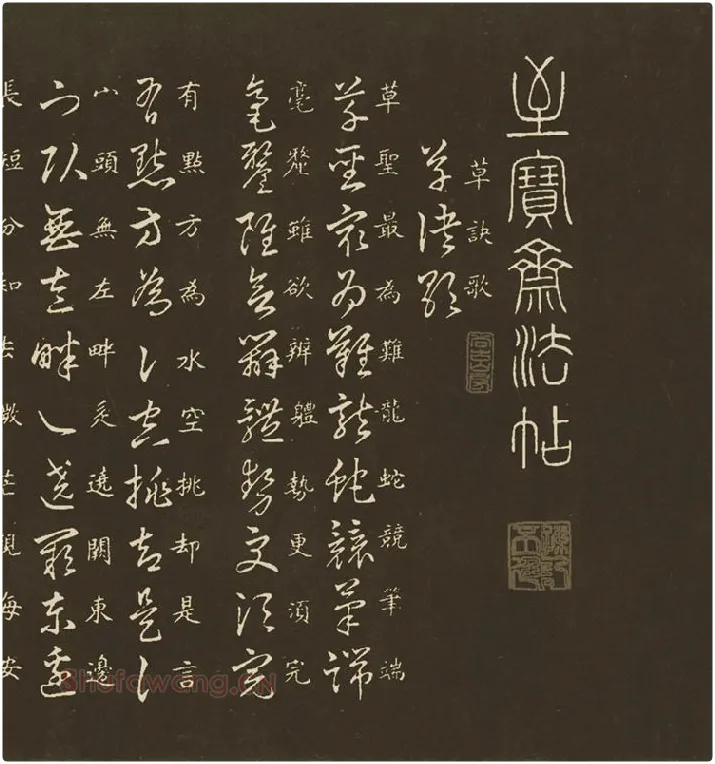 至寶齋法帖
草訣歌
草訣歌
草聖最為難龍蛇競筆端
草聖最為難龍蛇競筆端
毫釐雖欲辨軆勢更須完
毫釐雖欲辨體勢更須完
有點方為水空挑却是言
有點方為水空挑却是言
宀頭無左畔辵遶闕東邊
宀頭無左畔辵遶闕東邊
長短分知去
Shufawang.CN